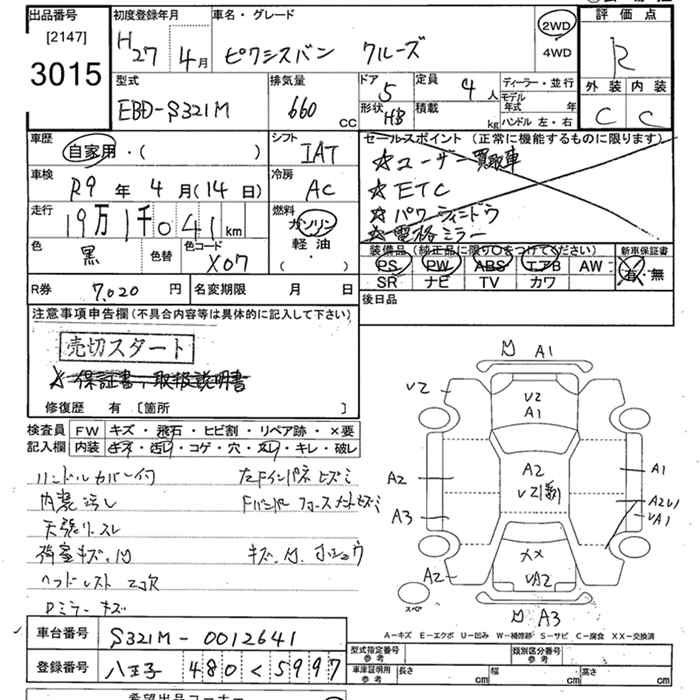 出品番号 初度登録年月 車名・グレード 2WD 評価点
[2147] H27年4月 ピクシスバン クルーズ 4WD R
3015
型式 排気量 ドア 定員 ディーラー・並行 外装 内装
EBD-S321M 660 CC 5 4人 モデル年式 年 C C
形状 HB 積載 kg ハンドル 左・右
車歴 シフト セールスポイント (正常に機能するものに限ります)
自家用・( ) IAT ☆ユーザー買取車
車検 冷房 ☆ETC
R9年4月(14日) AC ☆パワーウィンドウ
走行 燃料 ☆電格ミラー
19万1千041km ガソリン
色 色替 色コード 軽油 装備品 (純正品に限り○をつけてください) 新車保証書
黒 X07 ( ・ ) PS PW ABS エアB AW 有・無
SR ナビ TV カワ
R券 7,020円 名変期限 月 日 後日品
注意事項申告欄 (不具合内容等は具体的に記入して下さい)
売切スタート
☆保証書、取扱説明書
修復歴 有 [箇所 ]
検査員 FW キズ・飛石・ヒビ割・リペア跡・×要
記入欄 内装 キズ・汚れ・コゲ・穴・スレ・キレ・破レ
ハンドルカバー付 左Fインパネ ヒズミ
内装汚し
天張リスレ
荷室キズ、凹 キズ、凹
ヘッドレスト 2欠
Dミラー キズ
A1
V2
V2
A1
A2
A2
A1
A3
A2
××
A3
スペア
A-キズ E-エクボ U-凹み W-補修跡 S-サビ C-腐食 XX-交換済
車台番号 S321M-0012641 型式指定番号 参考 類別区分番号 参考
登録番号 八王子 480 く 5997 車庫証明用 参考 長さ cm 幅 cm 高さ cm
希望出品コーナー